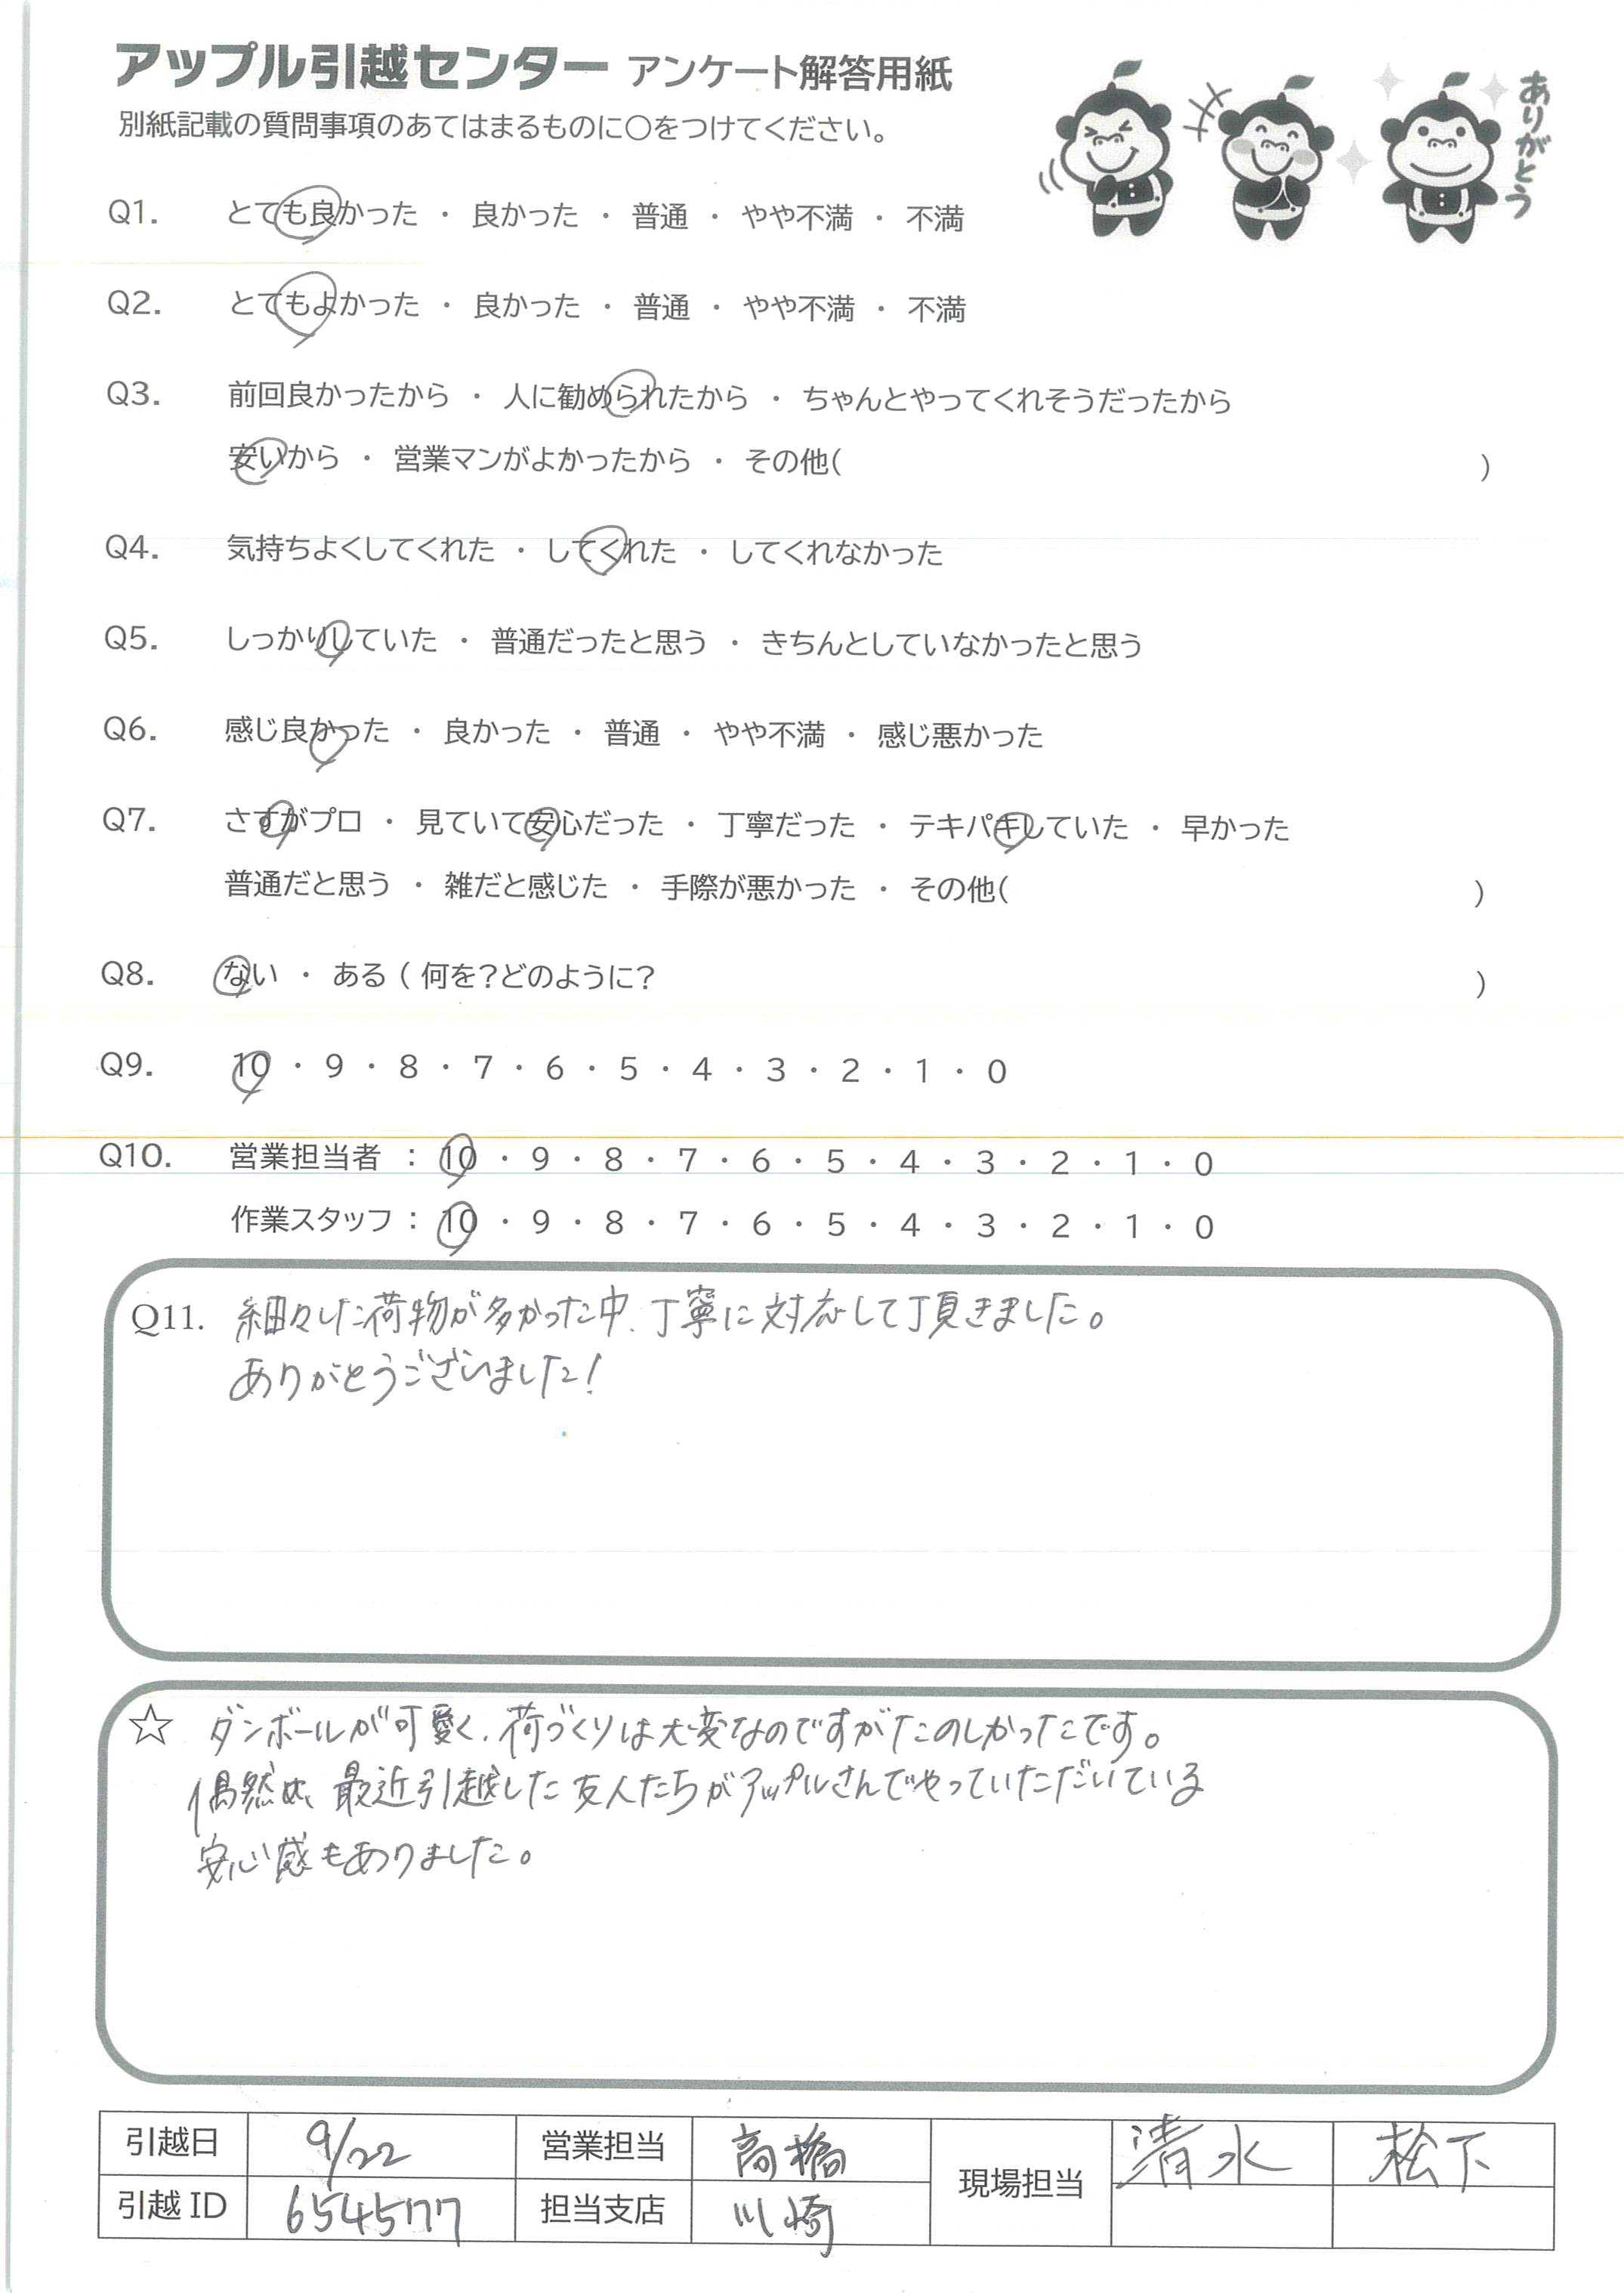 アップル引越センター アンケート解答用紙
別紙記載の質問事項のあてはまるものに○をつけてください。
ありがとう
Q1. とても良かった ・ 良かった ・ 普通 ・ やや不満 ・ 不満
Q2. とてもよかった ・ 良かった ・ 普通 ・ やや不満 ・ 不満
Q3. 前回良かったから ・ 人に勧められたから ・ ちゃんとやってくれそうだったから
安いから ・ 営業マンがよかったから ・ その他( )
Q4. 気持ちよくしてくれた ・ してくれた ・ してくれなかった
Q5. しっかりしていた ・ 普通だったと思う ・ きちんとしていなかったと思う
Q6. 感じ良かった ・ 良かった ・ 普通 ・ やや不満 ・ 感じ悪かった
Q7. さすがプロ ・ 見ていて安心だった ・ 丁寧だった ・ テキパキしていた ・ 早かった
普通だと思う ・ 雑だと感じた ・ 手際が悪かった ・ その他( )
Q8. ない ・ ある ( 何を?どのように? )
Q9. 10 ・ 9 ・ 8 ・ 7 ・ 6 ・ 5 ・ 4 ・ 3 ・ 2 ・ 1 ・ 0
Q10. 営業担当者 : 10 ・ 9 ・ 8 ・ 7 ・ 6 ・ 5 ・ 4 ・ 3 ・ 2 ・ 1 ・ 0
作業スタッフ : 10 ・ 9 ・ 8 ・ 7 ・ 6 ・ 5 ・ 4 ・ 3 ・ 2 ・ 1 ・ 0
Q11. 細々した荷物が多かった中、丁寧に対応して頂きました。
ありがとうございました!
☆ ダンボールが可愛く、荷づくりは大変なのですがたのしかったです。
偶然、最近引越した友人たちがアップルさんでやっていただいている
安心感もありました。
引越日 9/22 営業担当 高橋 現場担当 清水 松下
引越ID 6545777 担当支店 川崎